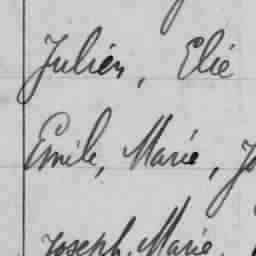 Julien, Elie
Emile, Marie, Jo
Joseph, Marie,